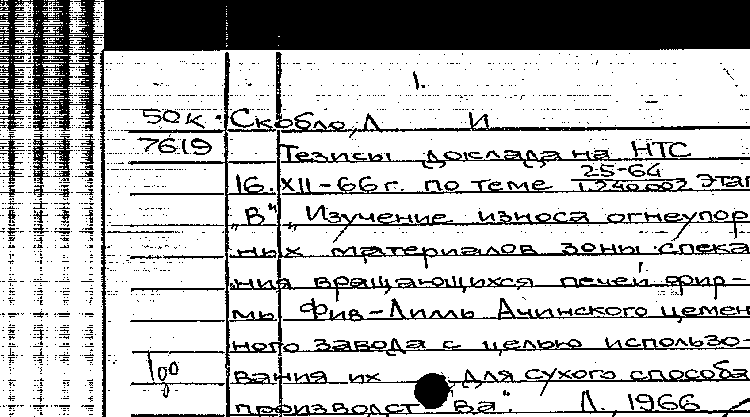 1.
50к. Скобло, Л И
7619 Тезисы доклада на НТС
16.XII-66г. по теме 25-64/1.240.002 этап
„В" „Изучение износа огнеупор
ных материалов зоны спека
ния вращающихся печей фир-
мы Фив-Лилль Ачинского цемен
ного завода с целью использо-
вания их для сухого способа
производст ва". Л., 1966